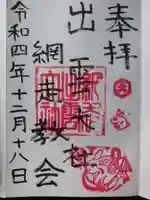 奉拝
出雲大社
網走教会
令和四年十二月十八日